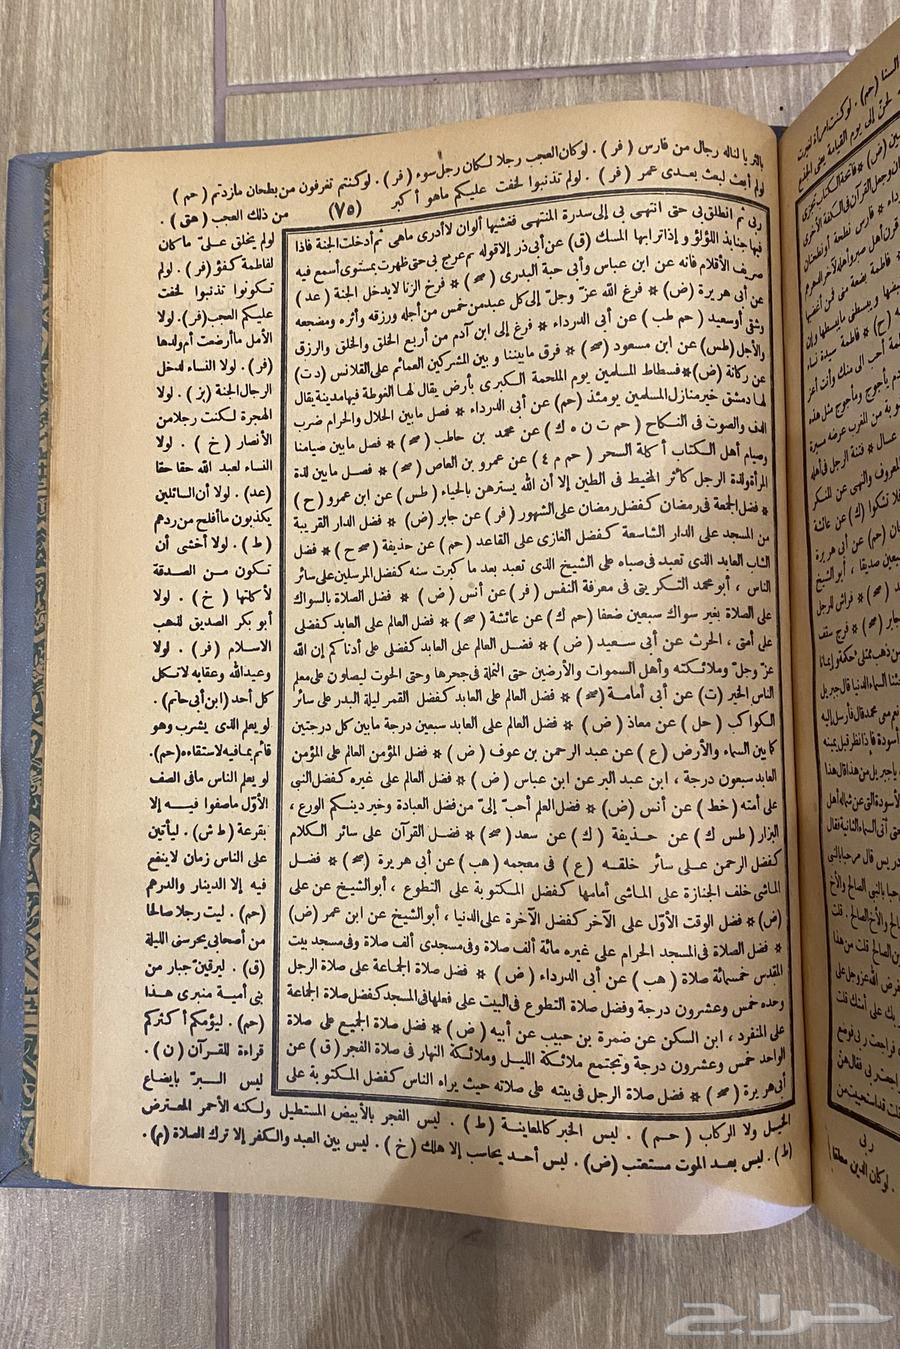 بالثريا لناله رجال من فارس (فر) . لوكان العجب رجلا لكان رجل سوء (فر) . لو كنتم تغرفون من بطحان مازدتم (حم)
لولم أبعث لبعث بعدى عمر (فر) . لولم تذنبوا لخفت عليكم ماهو أكبر
(٧٥)
من ذلك العجب (هق) .
لولم يخلق علىّ ماكان
لفاطمة كفؤ (فر) . لولم
تكونوا تذنبوا لخفت
عليكم العجب (فر). لولا
الأمل ماأرضعت أم ولدها
(فر) . لولا النساء لدخل
الرجال الجنة (بز) . لولا
الهجرة لكنت رجلا من
الأنصار (خ) . لولا
النساء لعبد الله حقا حقا
(عد) . لولا أن السائلين
يكذبون ماأفلح من ردهم
(ط) . لولا أخشى أن
تكون من الصدقة
لأكلتها (خ) . لولا
أبو بكر الصديق لذهب
الاسلام (فر) . لولا
وعيدالله وعقابه لاتكل
كل أحد (ابن أبى حاتم) .
لو يعلم الذى يشرب وهو
قائم بمافيه لاستقاءه (حم).
لو يعلم الناس مافى الصف
الأوّل ماصفوا فيه إلا
بقرعة (ط ش) . ليأتين
على الناس زمان لاينفع
فيه إلا الدينار والدرهم
(حم) . ليت رجلا صالحا
من أصحابى يحرسنى الليلة
(ق) . ليرقينّ جبار من
بنى أمية منبرى هذا
(حم) . ليؤمكم أكثركم
قراءة للقرآن (ن) .
ليس البرّ بايضاع
ربى ثم انطلق بى حتى انتهى بى إلى سدرة المنتهى فغشيها ألوان لاأدرى ماهى ثم أدخلت الجنة فاذا
فيها جنابذ اللؤلؤ وإذا ترابها المسك (ق) عن أبى ذر إلا قوله ثم عرج بى حتى ظهرت بمستوى أسمع فيه
صريف الأقلام فانه عن ابن عباس وأبى حبة البدرى (صح) * فرخ الزنا لايدخل الجنة (عد)
عن أبى هريرة (ض) * فرغ الله عزّ وجلّ إلى كل عبد من خمس من أجله ورزقه وأثره ومضجعه
وشقى أوسعيد (حم طب) عن أبى الدرداء * فرغ إلى ابن آدم من أربع الخلق والخلق والرزق
والأجل (طس) عن ابن مسعود (صح) * فرق مابيننا وبين المشركين العمائم على القلانس (دت)
عن ركانة (ض) * فسطاط المسلمين يوم الملحمة الكبرى بأرض يقال لها الغوطة فيها مدينة يقال
لها دمشق خير منازل المسلمين يومئذ (حم) عن أبى الدرداء * فصل مابين الحلال والحرام ضرب
الدف والصوت فى النكاح (حم ت ن ه ك) عن محمد بن حاطب (صح) * فصل مابين صيامنا
وصيام أهل الكتاب أكلة السحر (حم م ٤) عن عمرو بن العاص (صح) * فصل مابين لذة
المرأة ولذة الرجل كأثر المخيط فى الطين إلا أن الله يسترهن بالحياء (طس) عن ابن عمرو (ح)
* فضل الجمعة فى رمضان كفضل رمضان على الشهور (فر) عن جابر (ض) * فضل الدار القريبة
من المسجد على الدار الشاسعة كفضل الغازى على القاعد (حم) عن حذيفة (صح ح) * فضل
الشاب العابد الذى تعبد فى صباه على الشيخ الذى تعبد بعد ما كبرت سنه كفضل المرسلين على سائر
الناس ، أبو محمد التكريتى فى معرفة النفس (فر) عن أنس (ض) * فضل الصلاة بالسواك
على الصلاة بغير سواك سبعين ضعفا (حم ك) عن عائشة (صح) * فضل العالم على العابد كفضلى
على أمتى ، الحرث عن أبى سعيد (ض) * فضل العالم على العابد كفضلى على أدناكم إن الله
عزّ وجلّ وملائكته وأهل السموات والأرضين حتى النملة فى جحرها وحتى الحوت ليصلون على معلم
الناس الخير (ت) عن أبى أمامة (صح) * فضل العالم على العابد كفضل القمر ليلة البدر على سائر
الكواكب (حل) عن معاذ (ض) * فضل العالم على العابد سبعين درجة مابين كل درجتين
كما بين السماء والأرض (ع) عن عبد الرحمن بن عوف (ض) * فضل المؤمن العالم على المؤمن
العابد سبعون درجة ، ابن عبد البر عن ابن عباس (ض) * فضل العالم على غيره كفضل النبى
على أمته (خط) عن أنس (ض) * فضل العلم أحبّ إلىّ من فضل العبادة وخير دينكم الورع ،
البزار (طس ك) عن حذيفة (ك) عن سعد (صح) * فضل القرآن على سائر الكلام
كفضل الرحمن على سائر خلقه (ع) فى معجمه (هب) عن أبى هريرة (صح) * فضل
الماشى خلف الجنازة على الماشى أمامها كفضل المكتوبة على التطوع ، أبو الشيخ عن على
(ض) * فضل الوقت الأوّل على الآخر كفضل الآخرة على الدنيا ، أبو الشيخ عن ابن عمر (ض)
* فضل الصلاة فى المسجد الحرام على غيره مائة ألف صلاة وفى مسجدى ألف صلاة وفى مسجد بيت
المقدس خمسمائة صلاة (هب) عن أبى الدرداء (ض) * فضل صلاة الجماعة على صلاة الرجل
وحده خمس وعشرون درجة وفضل صلاة التطوع فى البيت على فعلها فى المسجد كفضل صلاة الجماعة
على المنفرد ، ابن السكن عن ضمرة بن حبيب عن أبيه (ض) * فضل صلاة الجميع على صلاة
الواحد خمس وعشرون درجة وتجتمع ملائكة الليل وملائكة النهار فى صلاة الفجر (ق) عن
أبى هريرة (صح) * فضل صلاة الرجل فى بيته على صلاته حيث يراه الناس كفضل المكتوبة على
الخيل ولا الركاب (حم) . ليس الخبر كالمعاينة (ط) . ليس الفجر بالأبيض المستطيل ولكنه الأحمر المعترض
(ط) . ليس بعد الموت مستعتب (ض) . ليس أحد يحاسب إلا هلك (خ) . ليس بين العبد والكفر إلا ترك الصلاة (م) .
ربى
. لو كان الدين معلقا
حراج